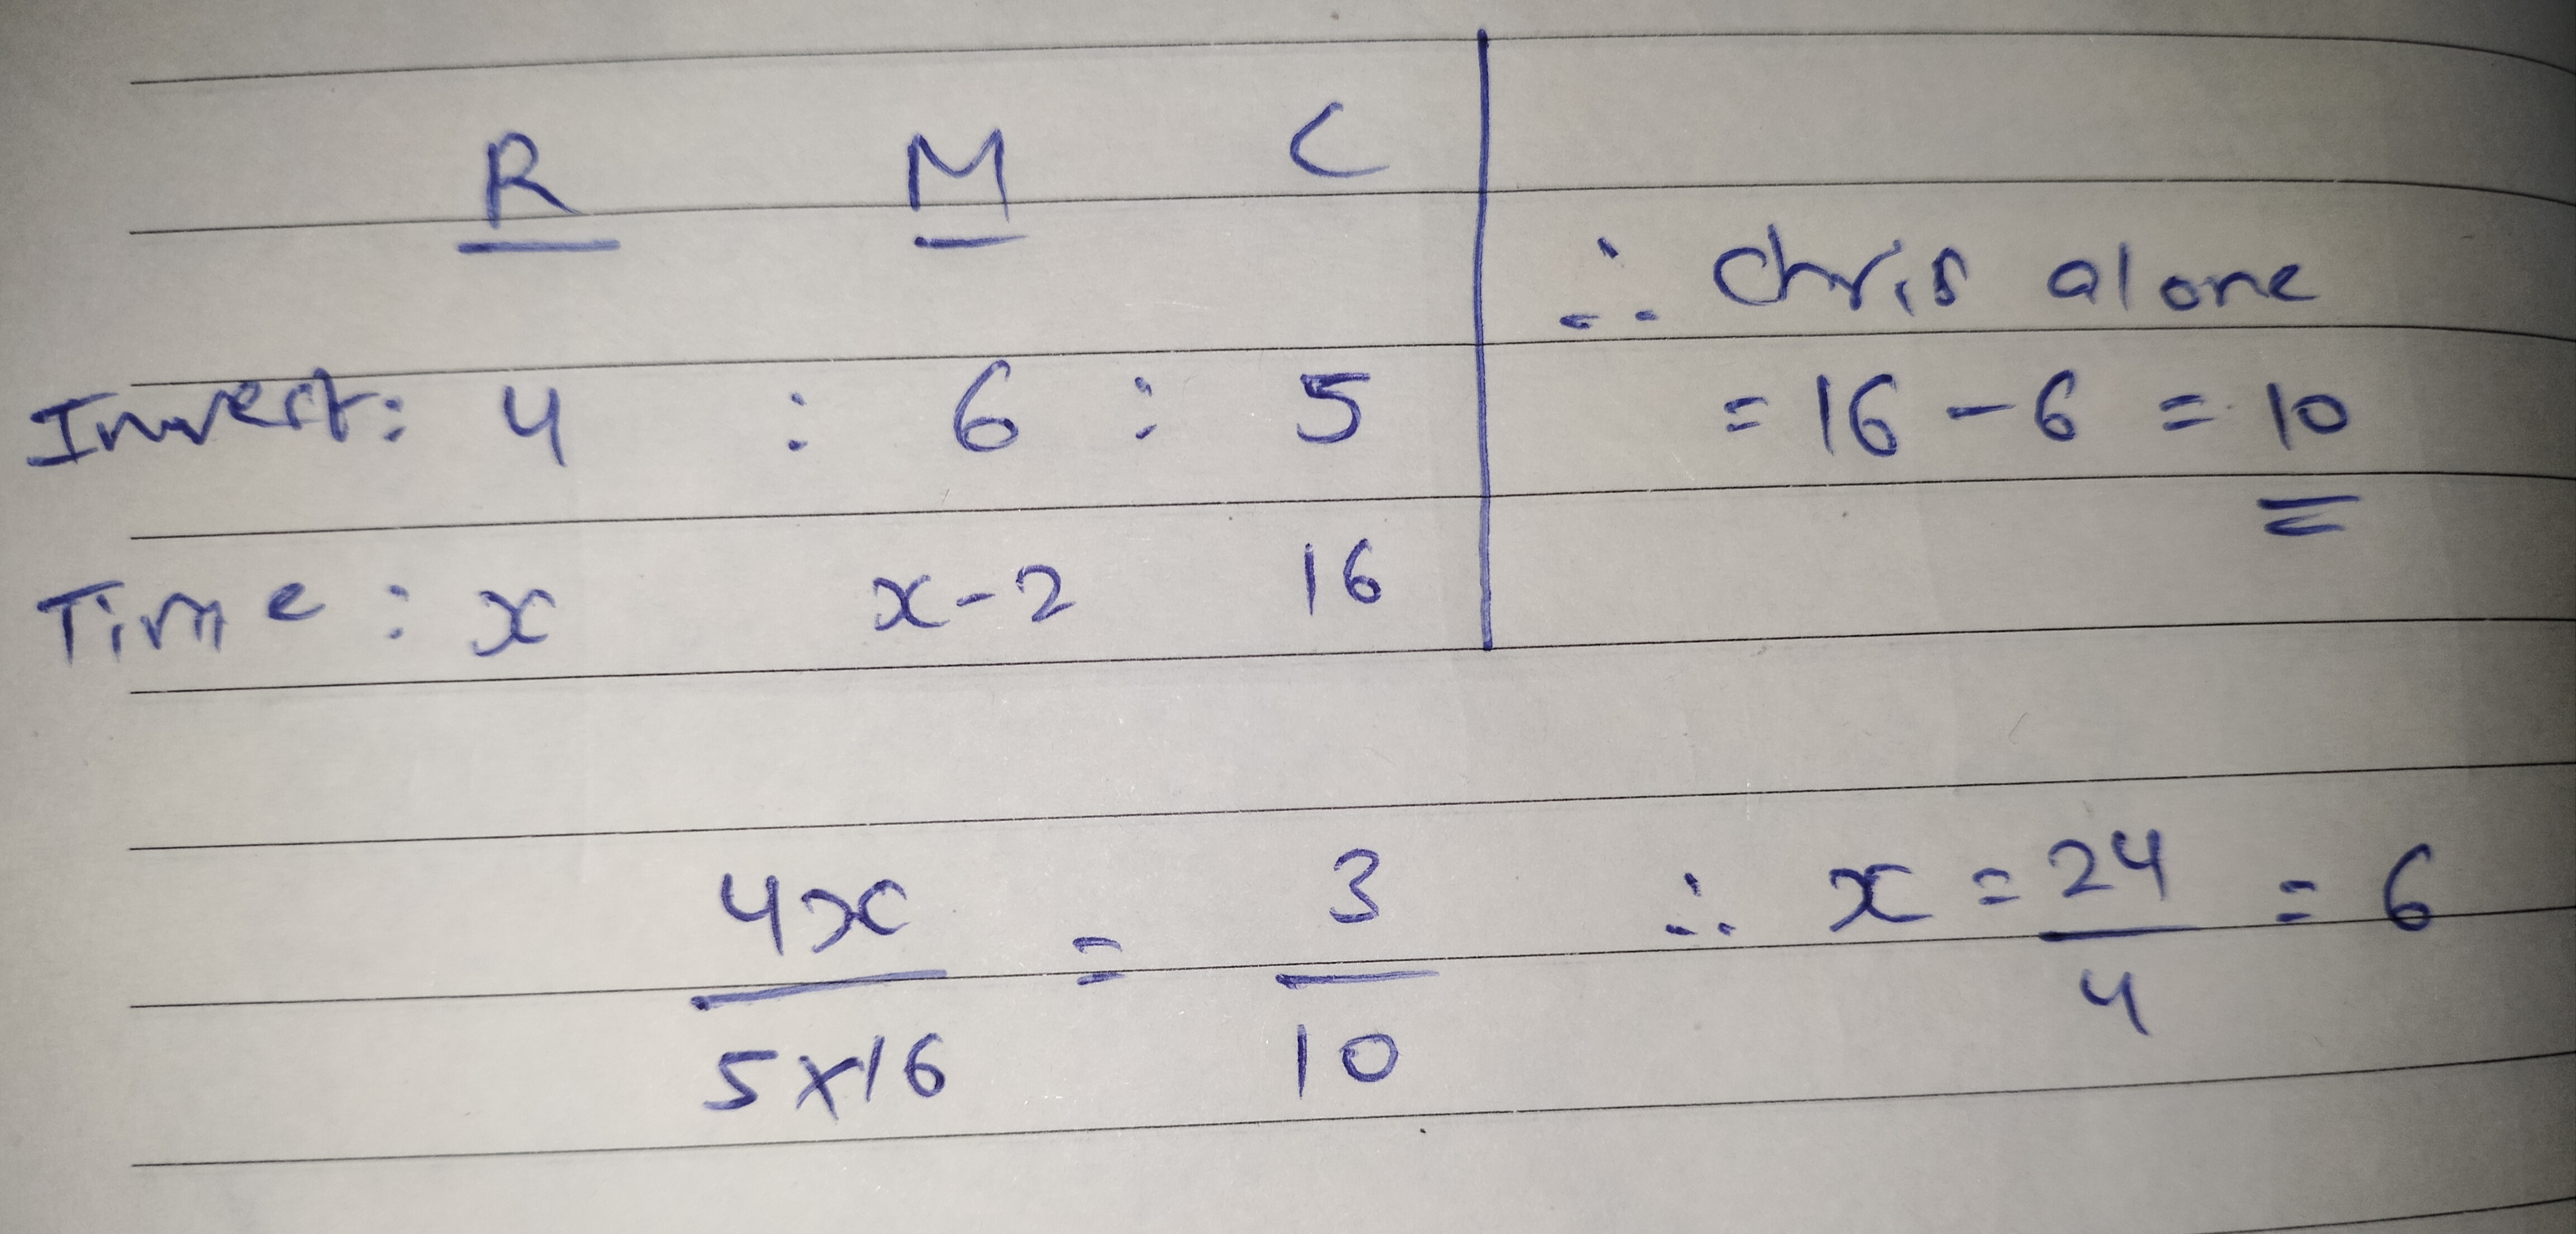 R M C
Invest: 4 : 6 : 5
Time : x x-2 16
∴ Chris alone
= 16 - 6 = 10
4x / 5×16 = 3 / 10 ∴ x = 24 / 4 = 6